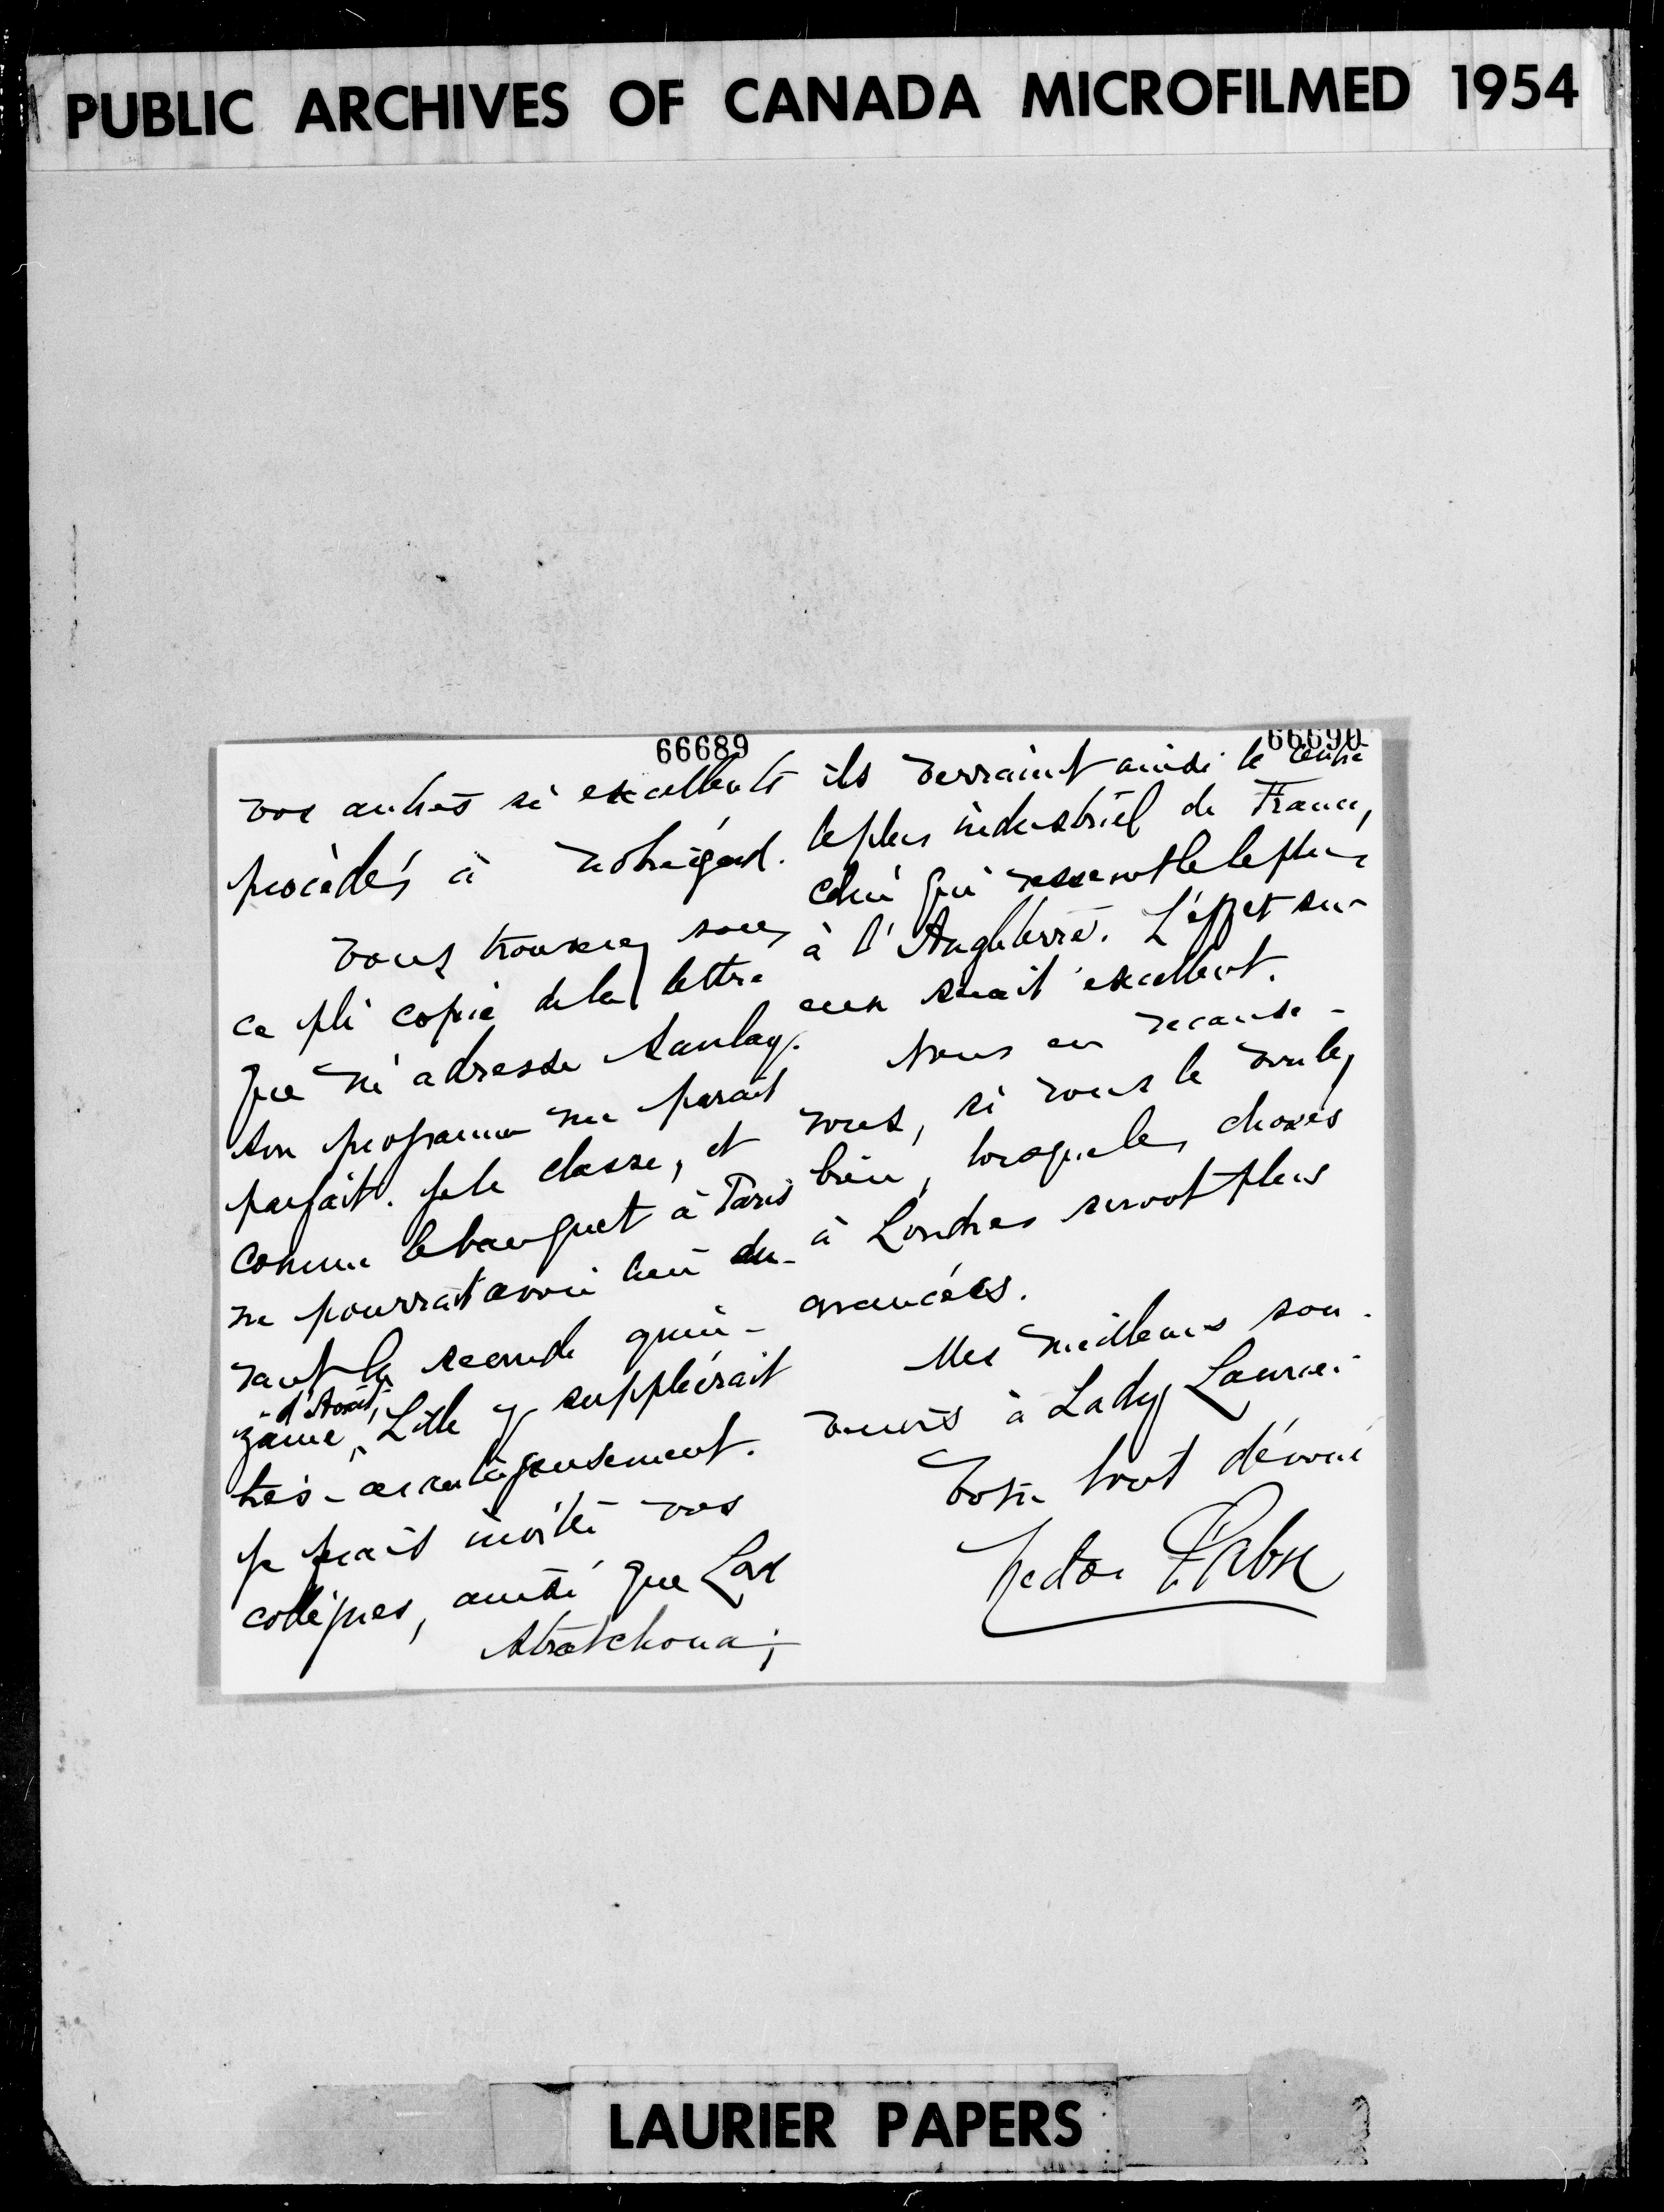 PUBLIC ARCHIVES OF CANADA MICROFILMED 1954
66689
vos autres si excellents
procédés à notre égard.
Vous trouverez sous
ce pli copie de la lettre
que m'adresse Saulay.
Son programme me parait
parfait. Je le classe, et
comme le banquet à Paris
ne pourrait avoir lieu du-
rant la seconde quin-
zaine d'Août, Lille y suppléerait
très-avantageusement.
Je ferais inviter vos
collègues, ainsi que Lord
Strathcona;
66690
ils verraient ainsi le centre
le plus industriel de France,
celui qui ressemble le plus
à l'Angleterre. L'effet sur
eux serait excellent.
Nous en recause-
rons, si vous le voulez
bien, lorsque les choses
à Londres seront plus
avancées.
Mes meilleurs sou-
venirs à Lady Laurier
Votre tout dévoué
Hector Fabre
LAURIER PAPERS